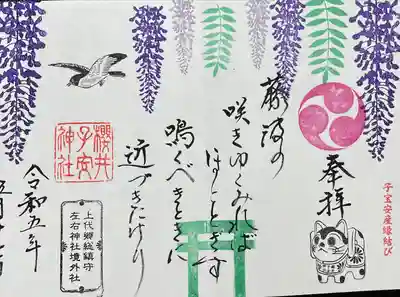 子宝安産縁結び
奉拝
藤波の
咲きゆくみれば
ほととぎす
鳴くべきときに
近づきにけり
櫻井
子安
神社
上代郷総鎮守
左右神社境外社
令和五年